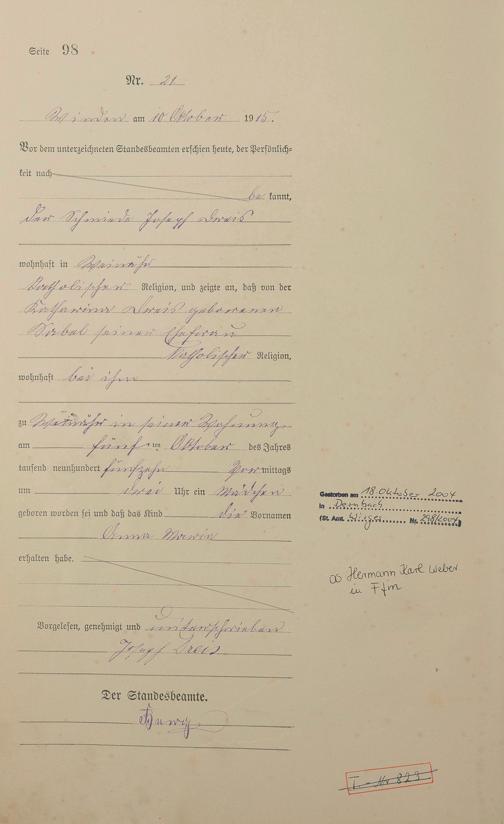 Seite 98
Nr. 21
Winden am 10 Oktober 1915.
Vor dem unterzeichneten Standesbeamten erschien heute, der Persönlich-
keit nach
be kannt,
der Schmiede Joseph Dreis
wohnhaft in Weinähr
katholischer Religion, und zeigte an, daß von der
Katharina Dreis geborenen
Sabel seiner Ehefrau
katholischer Religion,
wohnhaft bei ihm
zu Weinähr in seiner Wohnung
am fünften Oktober des Jahres
tausend neunhundert fünfzehn Vor mittags
um drei Uhr ein Mädchen
geboren worden sei und daß das Kind die Vornamen
Anna Maria
erhalten habe.
Vorgelesen, genehmigt und unterschrieben
Joseph Dreis
Der Standesbeamte.
Gestorben am 18. Oktober 2004
in
(St. Amt. Nr. 298/2004)
∞ Hermann Karl Weber
in Ffm
I - Nr 823